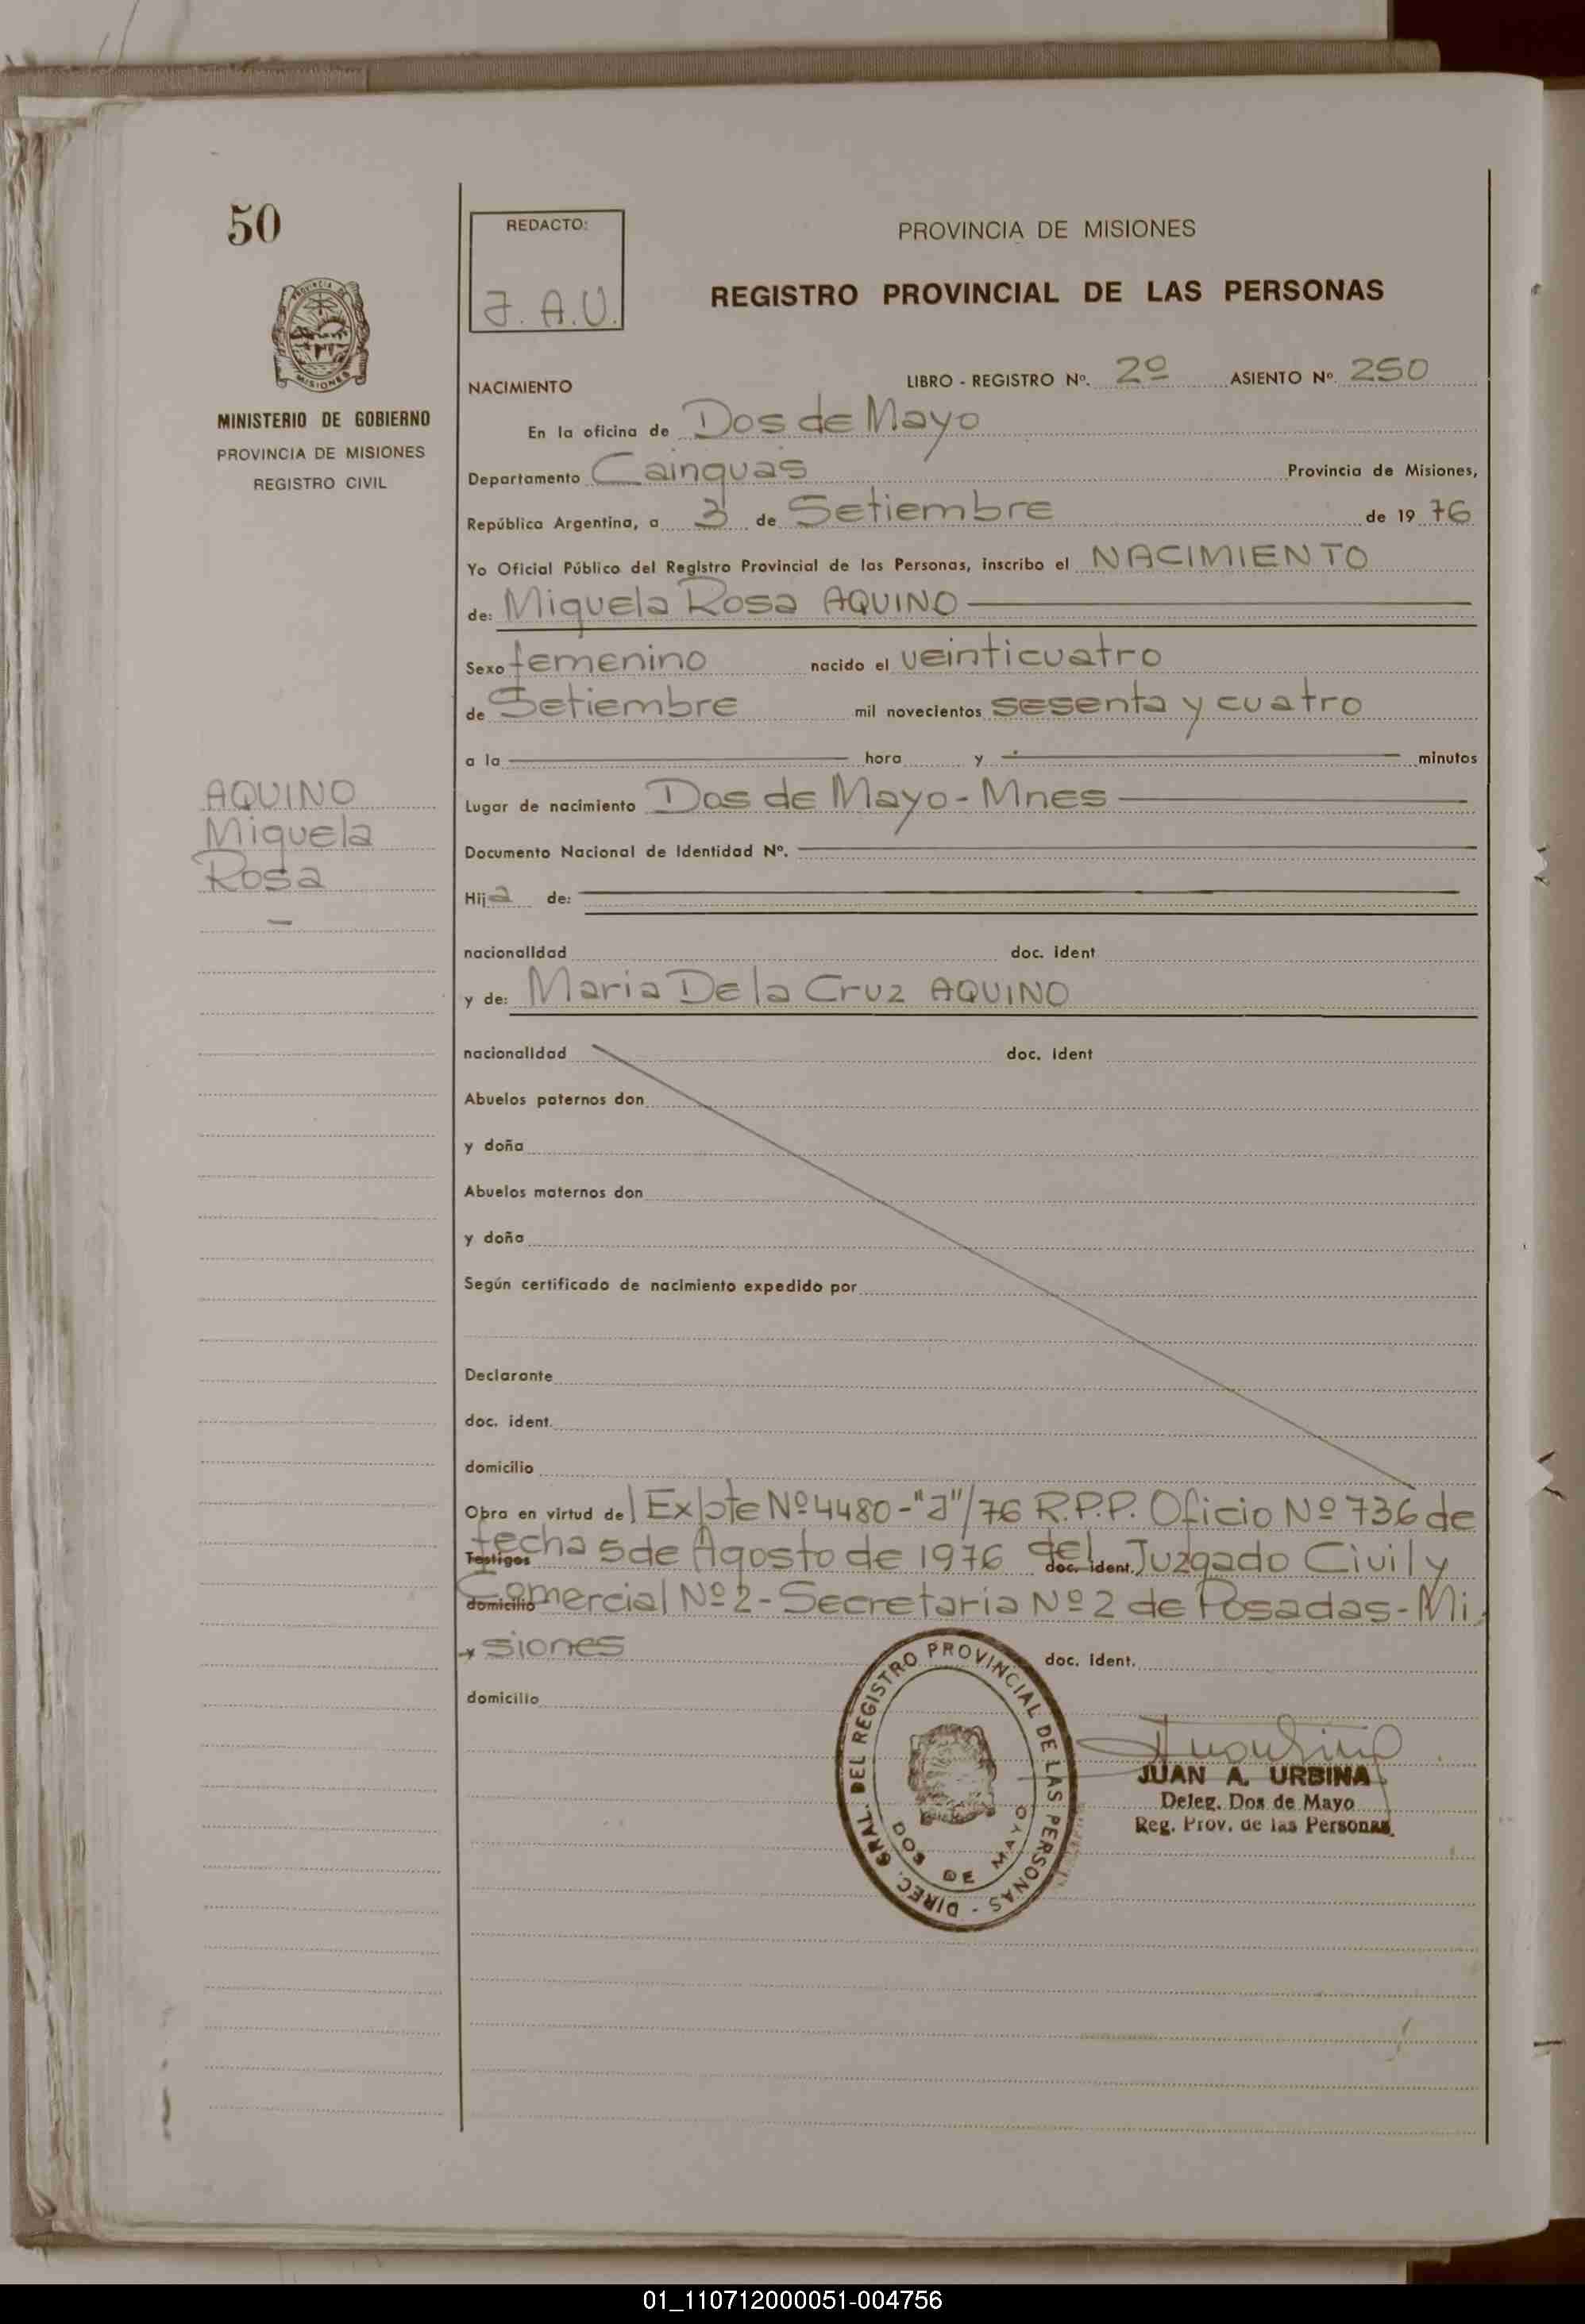 50
REDACTO:
J. A. U.
PROVINCIA DE MISIONES
REGISTRO PROVINCIAL DE LAS PERSONAS
PROVINCIA DE
MISIONES
MINISTERIO DE GOBIERNO
PROVINCIA DE MISIONES
REGISTRO CIVIL
NACIMIENTO LIBRO - REGISTRO Nº. 2º ASIENTO Nº. 250
En la oficina de Dos de Mayo
Departamento Cainguas Provincia de Misiones,
República Argentina, a 3 de Setiembre de 19 76
Yo Oficial Público del Registro Provincial de las Personas, inscribo el NACIMIENTO
de: Miguela Rosa AQUINO
Sexo femenino nacido el veinticuatro
de Setiembre mil novecientos sesenta y cuatro
a la hora y minutos
AQUINO
Miguela
Rosa
Lugar de nacimiento Dos de Mayo - Mnes
Documento Nacional de Identidad Nº.
Hija de:
nacionalidad doc. ident
y de: Maria De la Cruz AQUINO
nacionalidad doc. ident
Abuelos paternos don
y doña
Abuelos maternos don
y doña
Según certificado de nacimiento expedido por
Declarante
doc. ident.
domicilio
Obra en virtud del Expte Nº 4480-"a"/76 R.P.P. Oficio Nº 736 de
Testigos fecha 5 de Agosto de 1976 del doc. ident. Juzgado Civil y
domicilio Comercial Nº 2 - Secretaria Nº 2 de Posadas - Mi
y siones doc. ident.
domicilio
DIREC. GRAL. DEL REGISTRO PROVINCIAL DE LAS PERSONAS -
DOS DE MAYO
JUAN A. URBINA
Deleg. Dos de Mayo
Reg. Prov. de las Personas
01_110712000051-004756